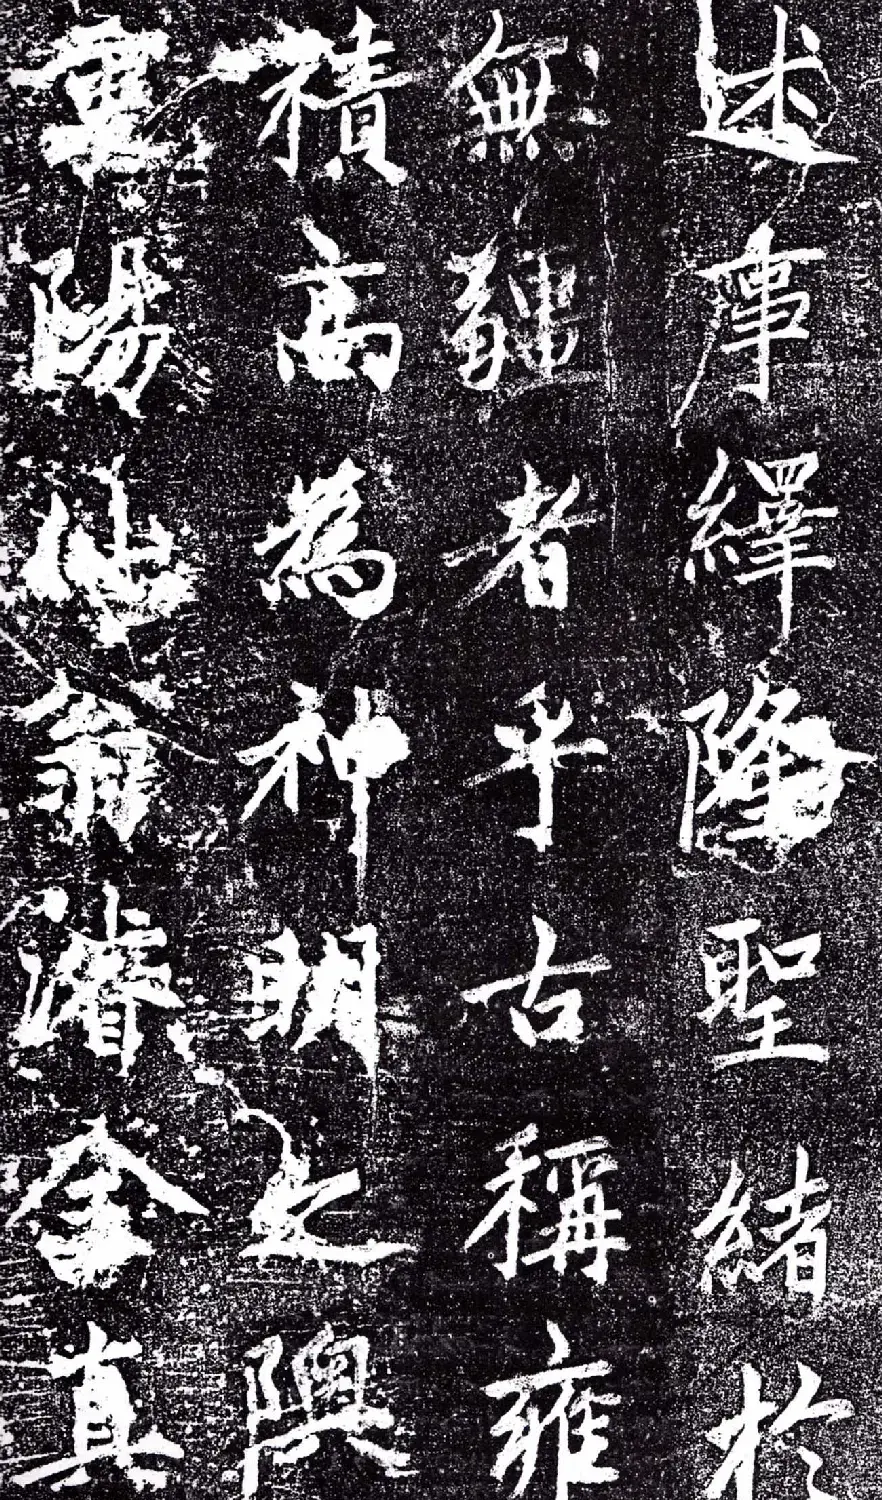 述事繹隆聖緒於
無疆者乎古稱雍
積高為神明之隩
重陽仙翁濬全真